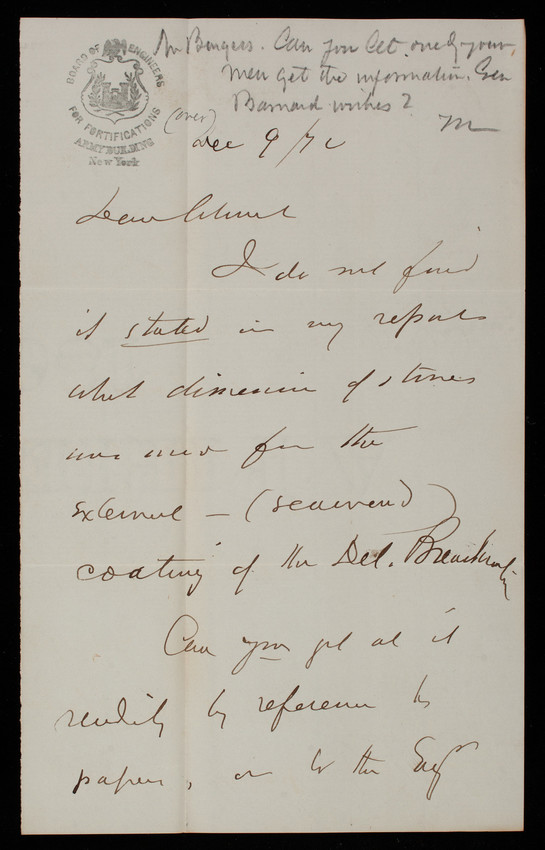 BOARD OF ENGINEERS
FOR FORTIFICATIONS
ARMY BUILDING
New York
Mr Burgess. Can you let one of your
men get the information Gen
Barnard wishes?
(over)
M
Dec 9/72
Dear Colonel
I do not find
it stated in my reports
what dimension of stones
was used for the
external – (seaward)
coating of the Del. Breakwater
Can you get at it
readily by reference to
papers, or to the Eng